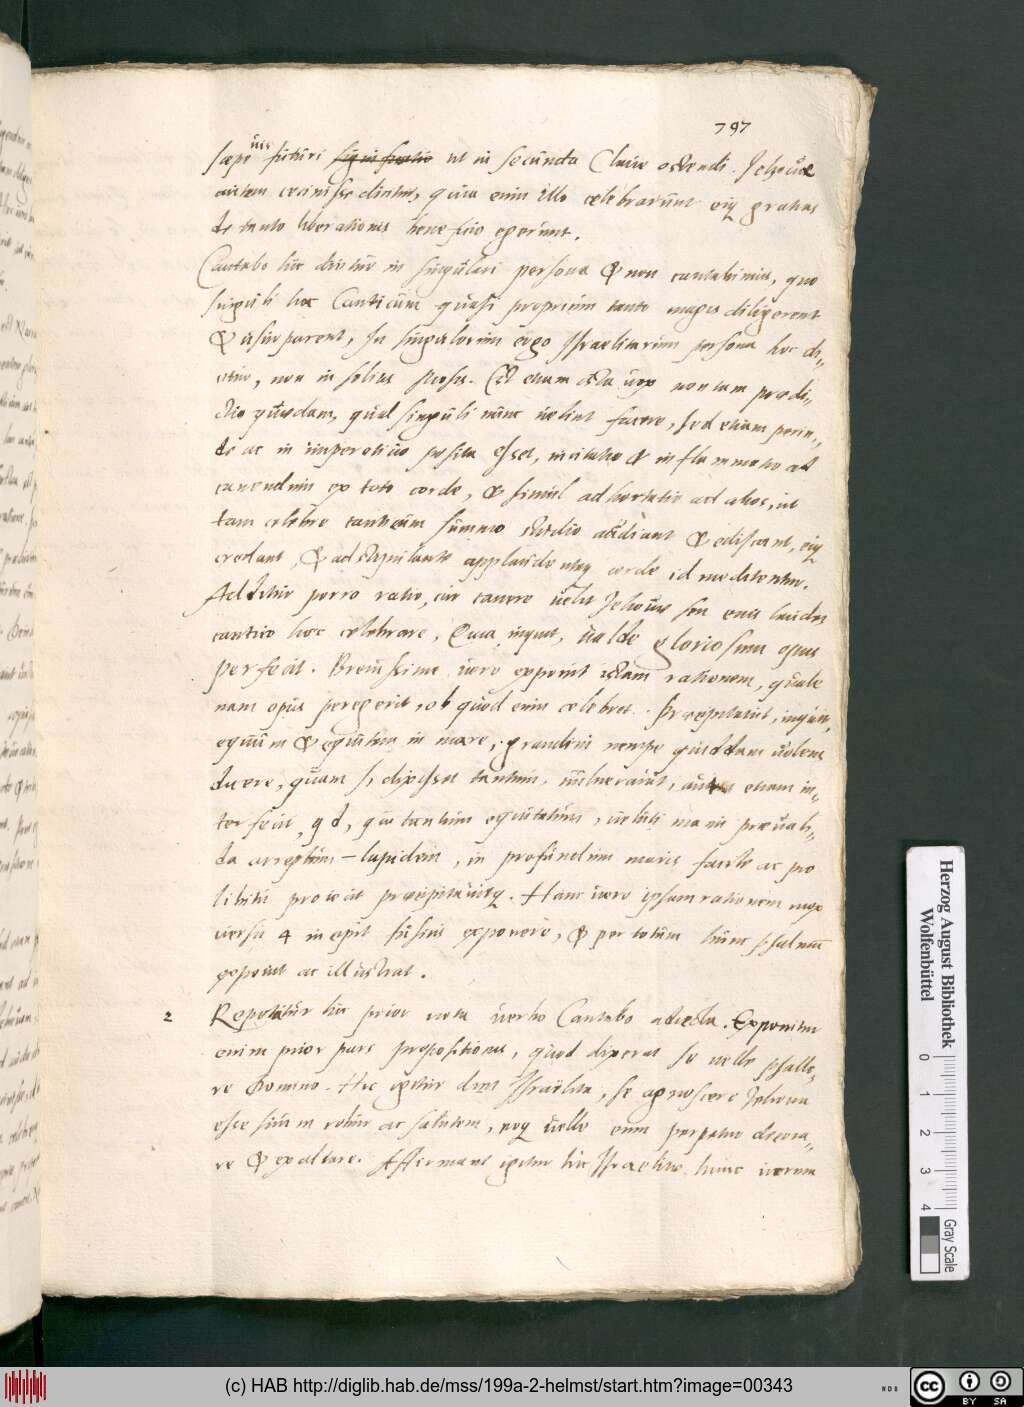 797
sæpe uss futuri significatio ut in secunda Clave ostendi. Jehovæ
autem cecinisse dicitur, quia enim illo celebrarunt eiq gratias
de tanto liberationis beneficio egerunt.
Cantabo hic dicitur in singulari persona & non cantabimus, quo
singuli hoc Canticum quasi proprium tanto magis diligerent
& usurparent, In singulorum ergo Israelitarum persona hoc di„
citur, non in solius Mosis. Est etiam ista vox non tam prædi„
ctio quædam, quid singuli nunc velint facere, sed etiam perin„
de ac in imperativo posita esset, incitatio & inflammatio ad
canendum ex toto corde, & simul adhortatio ad alios, ut
tam celebre canticum summo studio audiant & ediscant, eiq
credant, & adstipulante applaudenteq corde id meditentur.
Additur porro ratio, cur canere velit Jehovæ seu eius laudes
cantico hoc celebrare, Quia, inquit, valde gloriosum opus
perfecit. Brevissime vero exponit istam rationem, quale
nam opus peregerit, ob quod eum celebret. Præcipitavit, inquit,
equum & equitem in mare,
ducere, quam si dixisset tantum, vulneravit, etiam in„
terfecit, qd, quasi tantum equitatum, veluti manu prævali„
da arreptum lapidem, in profundum maris facile ac pro
libitu proiecit præcipitavitq. Hanc vero ipsam rationem mox
versu 4 incipit fusius exponere, & per totum hunc psalmum
exponit ac illustrat.
2 Repetitur hic prior nota verbo Cantabo adiecta. Exponitur
enim prior pars propositionis, quod dixerat se velle psalle„
re Domino. Hic igitur dicunt Israëlitæ, se agnoscere Jehova
esse suum robur ac salutem, eoq velle eum perpetuo decora„
re & exaltare. Affirmant igitur hic Israelitæ hunc verum
Herzog August Bibliothek
Wolfenbüttel
0 1 2 3 4
Gray Scale
(c) HAB http://diglib.hab.de/mss/199a-2-helmst/start.htm?image=00343
cc BY SA